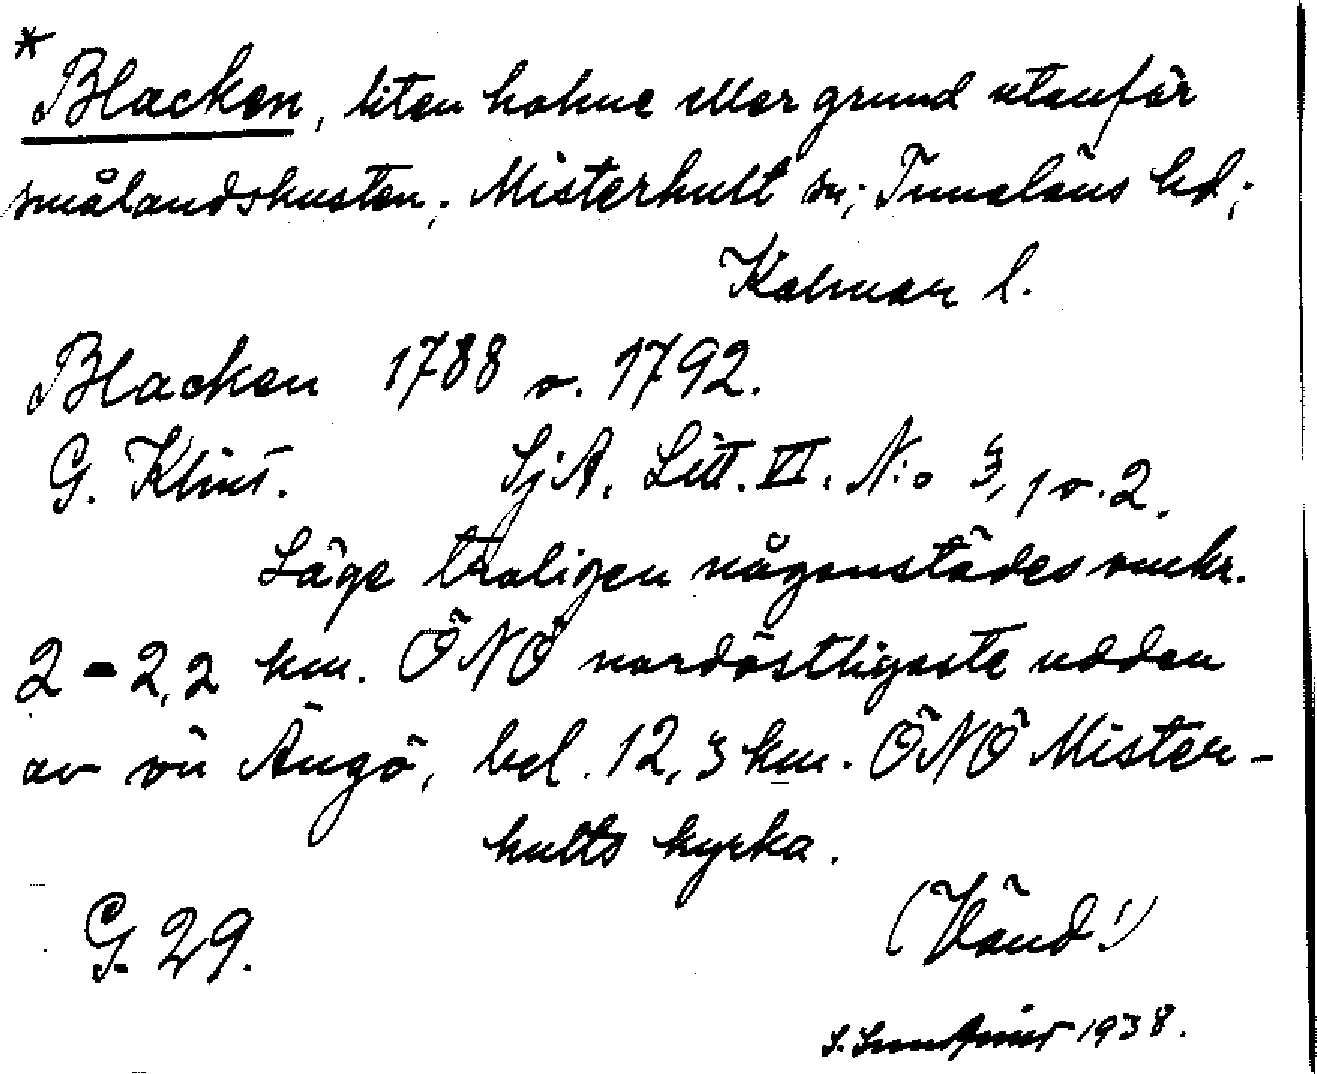 *
Blacken, liten holme eller grund utanför
smålandskusten; Misterhult sn; Tunaläns hd;
Kalmar l.
Blacken 1788 o. 1792.
G. Klint. SjA. Litt. VI. N:o 3, 1 o. 2.
Läge troligen någonstädes omkr.
2-2,2 km. ÖNÖ nordöstligaste udden
av ön Ängö, bel. 12,3 km. ÖNÖ Mister-
hults kyrka.
G. 29. (Vänd!)
S. 1938.